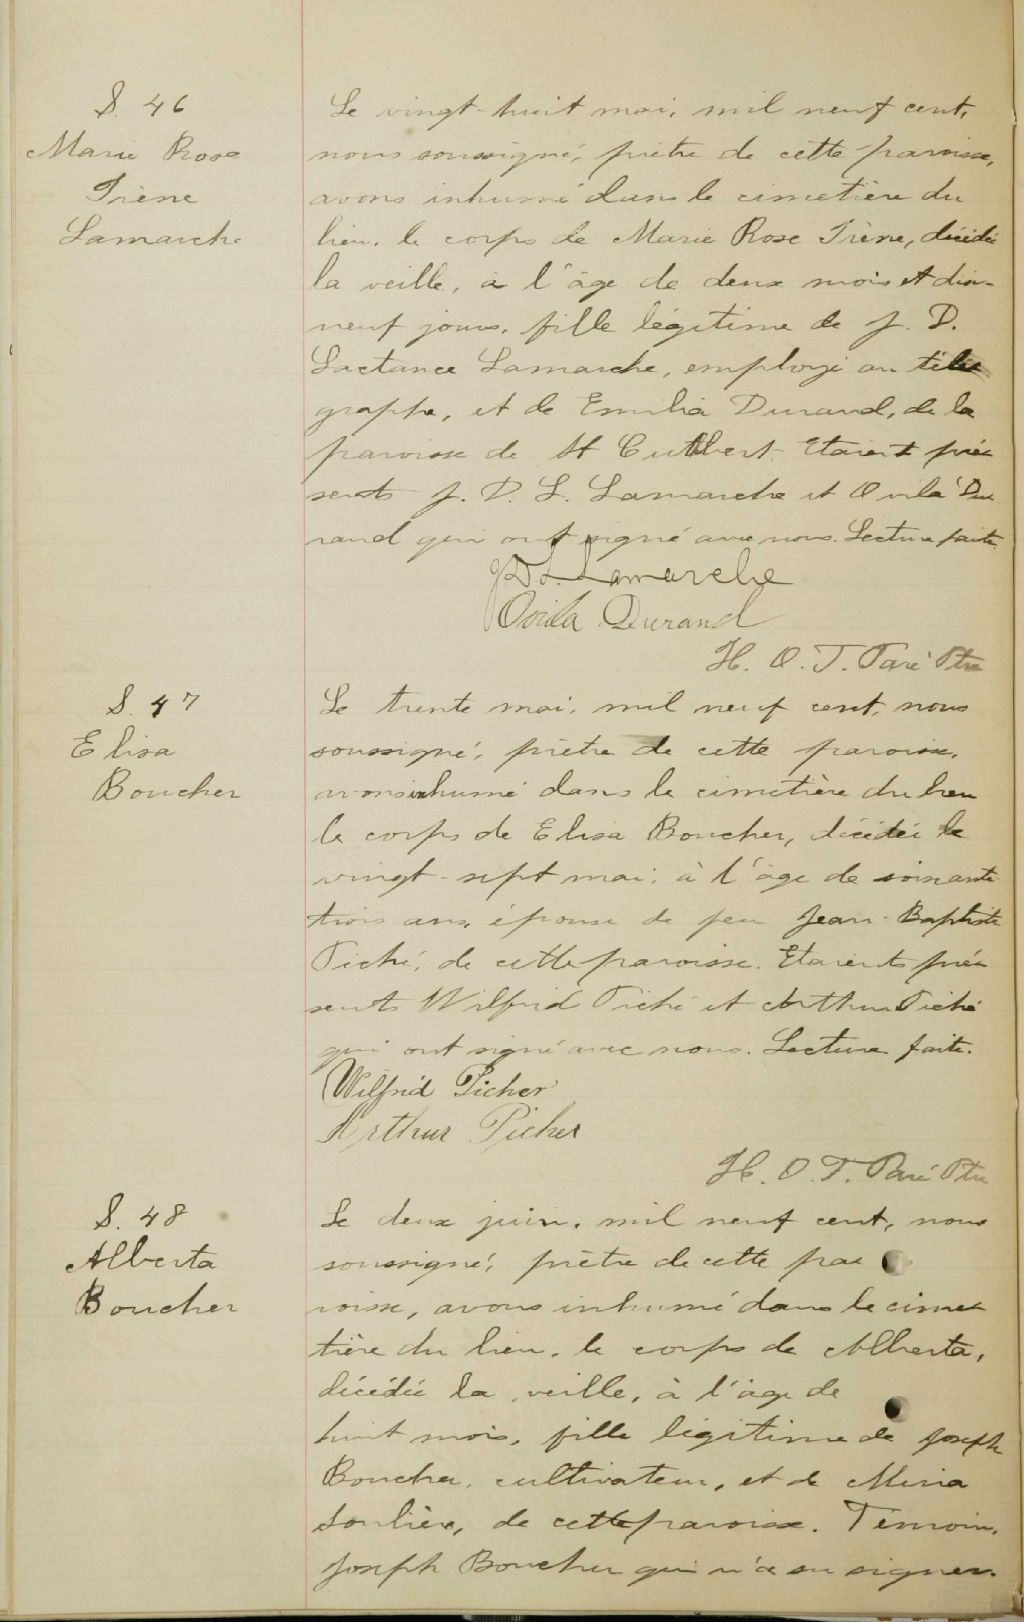 S. 46
Marie Rose
Irène
Lamarche
Le vingt-huit mai, mil neuf cent,
nous soussigné, prêtre de cette paroisse,
avons inhumé dans le cimetière du
lieu, le corps de Marie Rose Irène, décédée
la veille, à l'âge de deux mois et dix-
neuf jours, fille légitime de J. D.
Lactance Lamarche, employé au télé
graphe, et de Emilia Durand, de la
paroisse de St Cuthbert. Etaient pré
sents J. D. L. Lamarche et Ovila Du
rand qui ont signé avec nous. Lecture faite
J D L Lamarche
Ovila Durand
H. O. T. Paré Ptre
S. 47
Elisa
Boucher
Le trente mai, mil neuf cent, nous
soussigné, prêtre de cette paroisse,
avons inhumé dans le cimetière du lieu
le corps de Elisa Boucher, décédée le
vingt-sept mai, à l'âge de soixante
trois ans, épouse de feu Jean-Baptiste
Piché, de cette paroisse. Etaient pré
sents Wilfrid Piché et Arthur Piché
qui ont signé avec nous. Lecture faite.
Wilfrid Picher
Arthur Picher
H. O. T. Paré Ptre
S. 48
Alberta
Boucher
Le deux juin, mil neuf cent, nous
soussigné, prêtre de cette pa
roisse, avons inhumé dans le cime
tière du lieu, le corps de Alberta,
décédée la veille, à l'âge de
huit mois, fille légitime de Joseph
Boucher, cultivateur, et de
Soulière, de cette paroisse. Témoin,
Joseph Boucher qui n'a su signer.